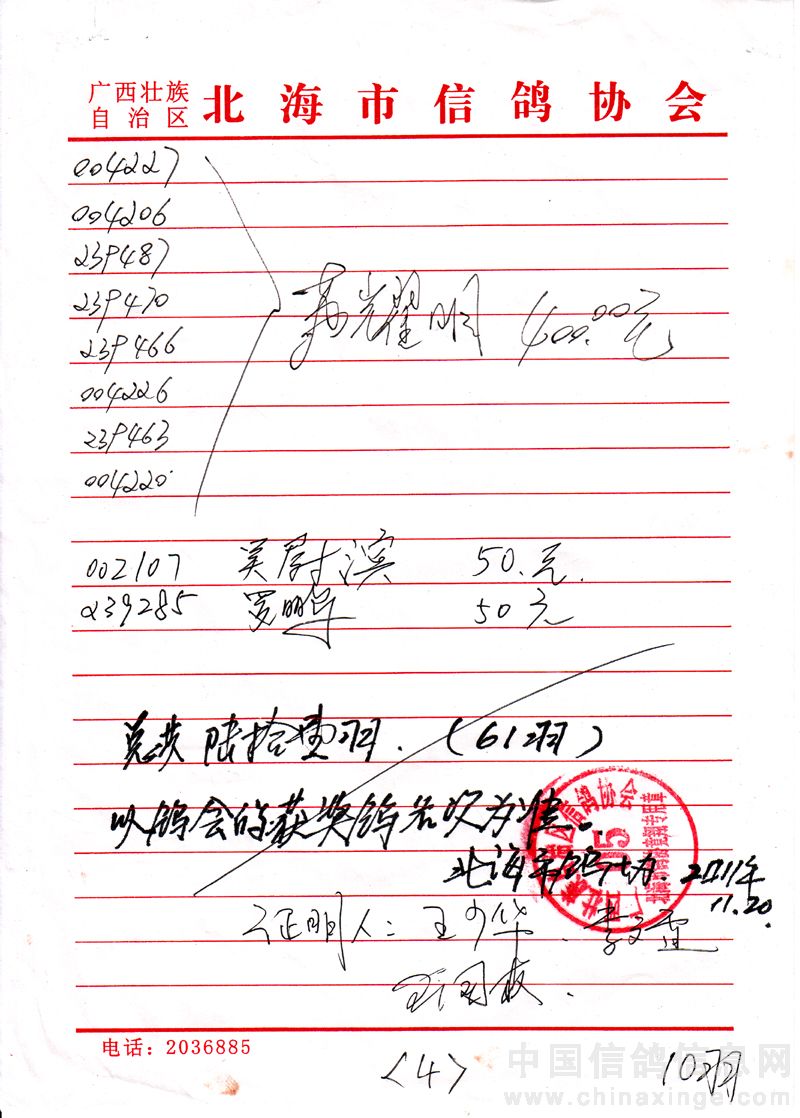 广西壮族
自治区 北海市信鸽协会
004227
004206
239487
239470
239466
004226
239463
004220
耀明 400.00元
002107 吴尉滨 50.元.
239285 罗鹏 50元
总共陆拾壹羽.(61羽)
以鸽会的获奖鸽名次为准。
信鸽协会
15
北海市鸽协. 2011年
11.20.
证明人:王少华.李
电话:2036885
<4> 10羽
中国信鸽信息网
www.chinaxinge.com